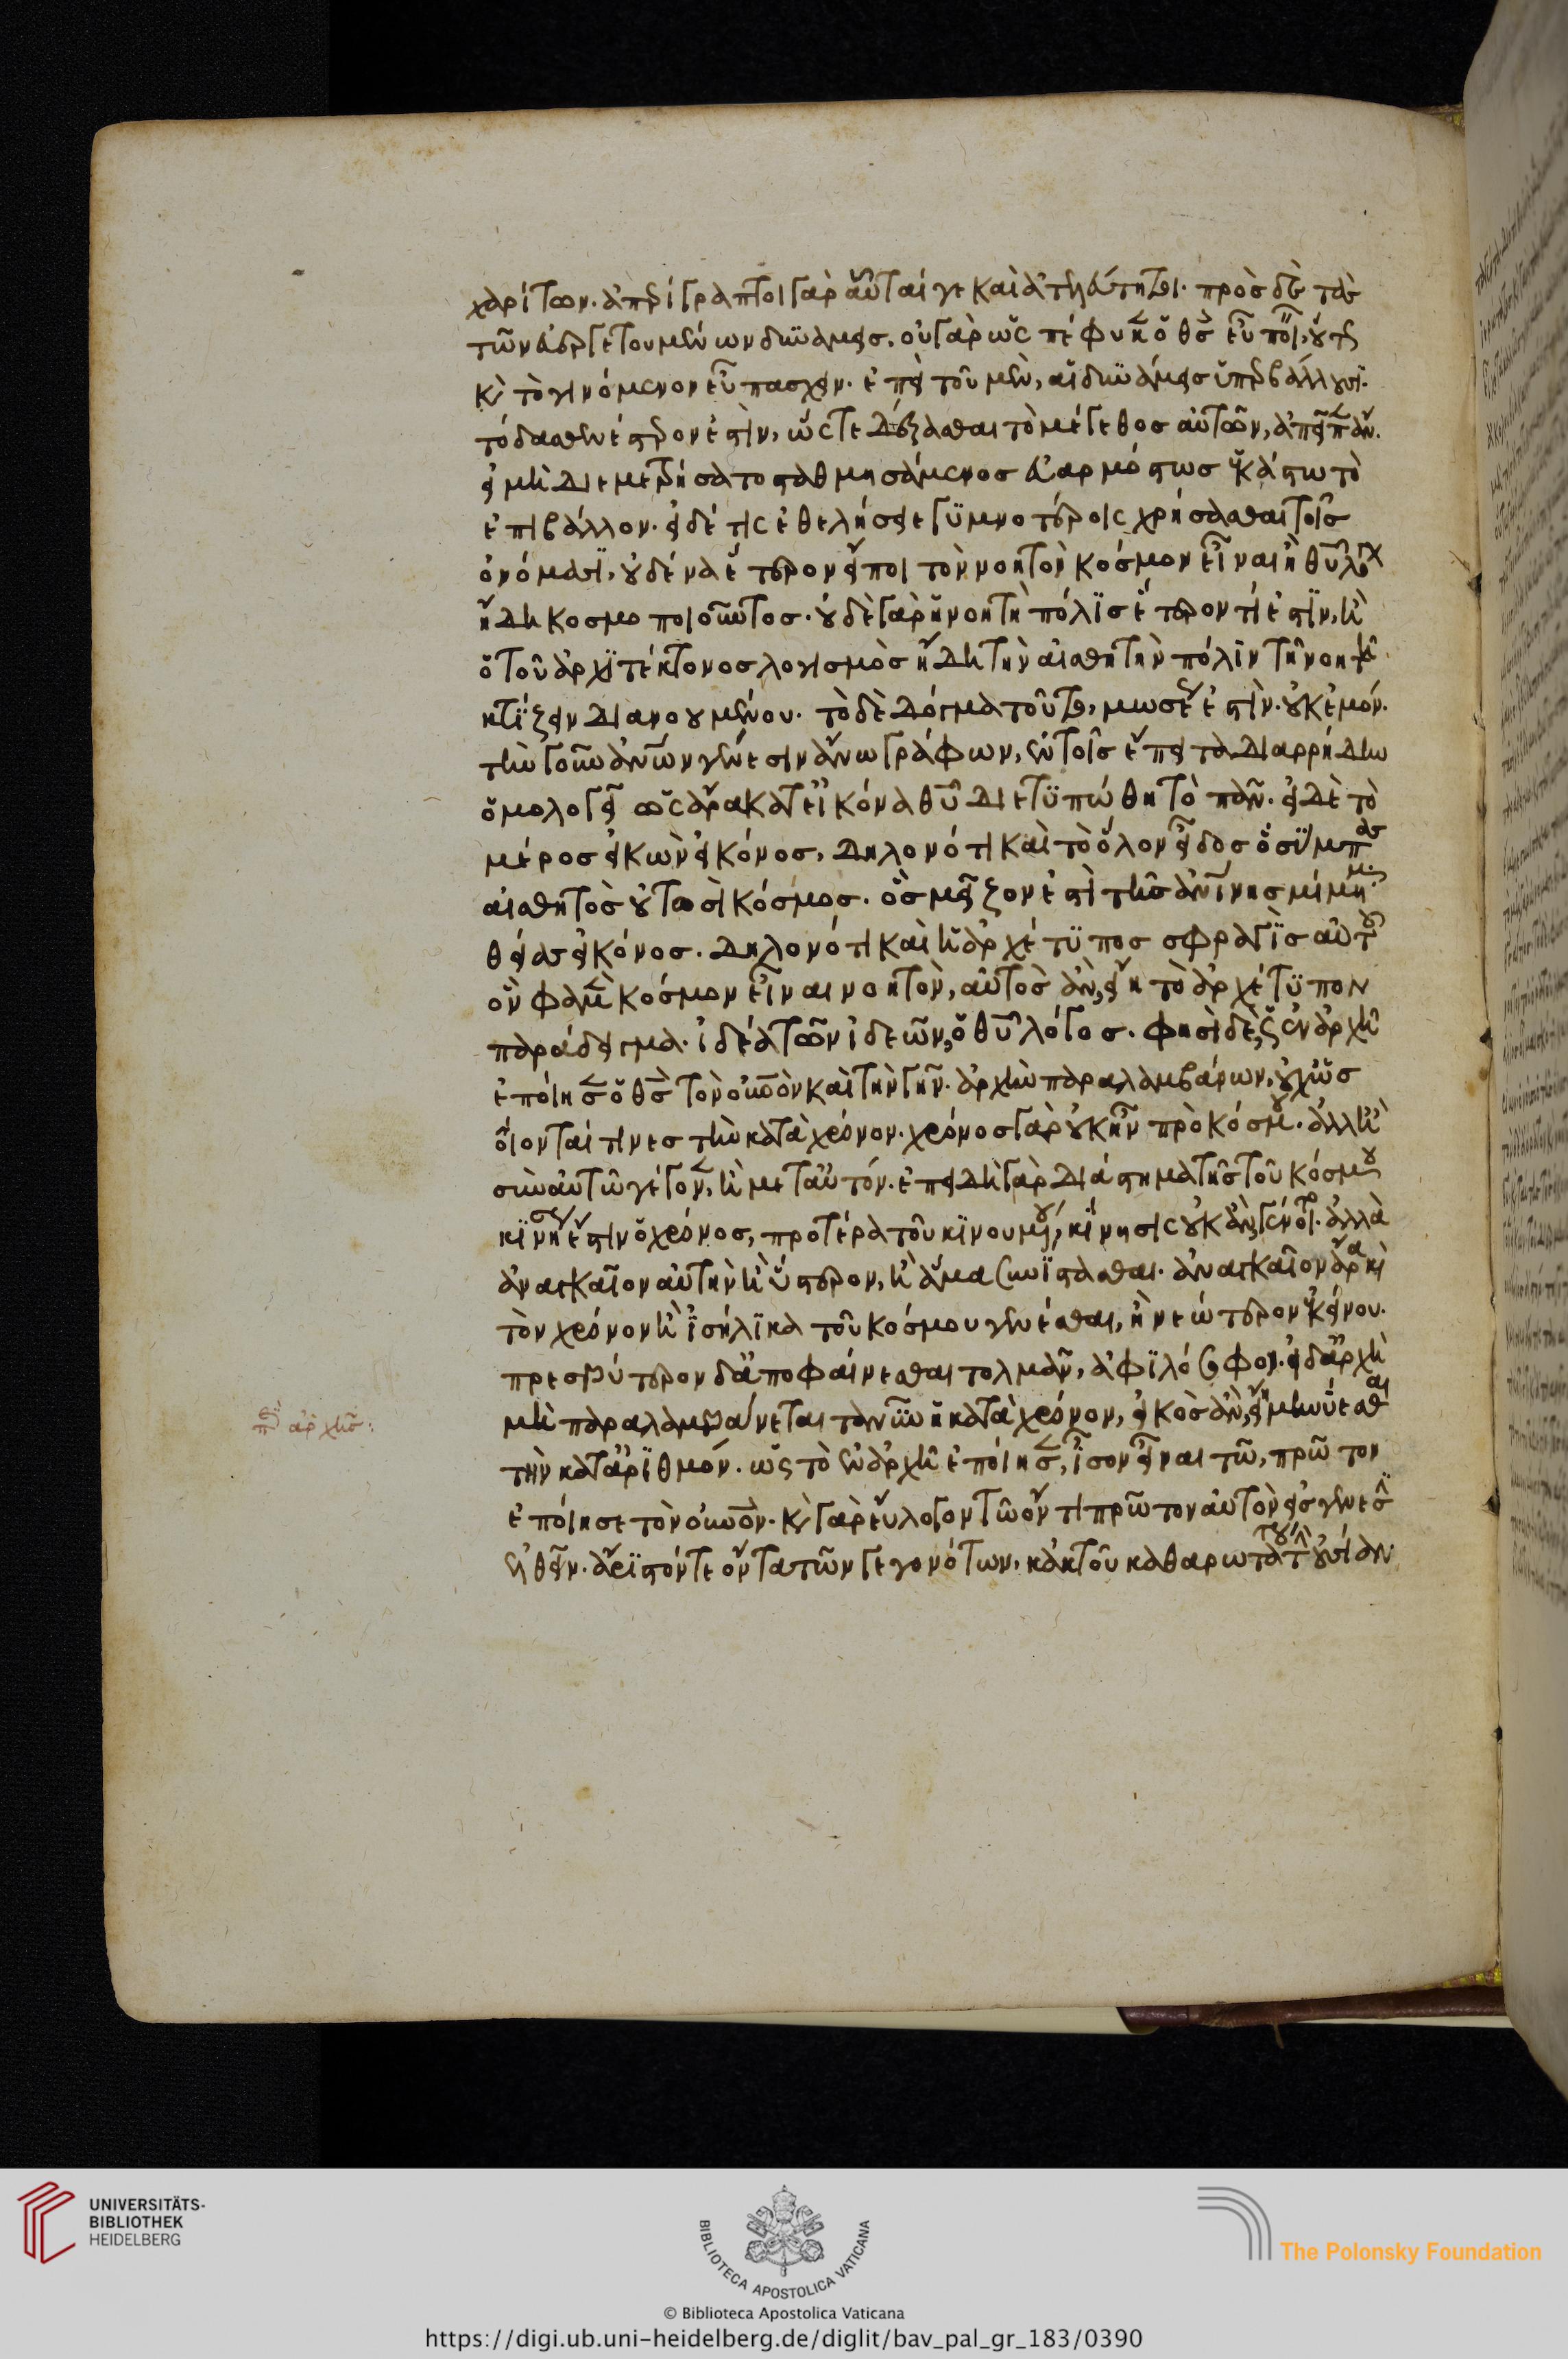 χαρίτων. ἀπερίγραπτοι γὰρ αὗταί γε καὶ ἀτελεύτητοι. πρὸς δὲ τὰς
τῶν εὐεργετουμένων δυνάμεις. οὐ γὰρ ὡς πέφυκεν ὁ θς εὖ ποιεῖν, οὕτως
καὶ τὸ γινόμενον εὖ πάσχειν. ἐπεὶ τοῦ μὲν, αἱ δυνάμεις ὑπερβάλλουσι.
τὸ δ' ἀσθενέστερον ἐστὶν, ὥστε δέξασθαι τὸ μέγεθος αὐτῶν, ἀπεῖπεν ἄν.
εἰ μὴ διεμετρήσατο σταθμησάμενος εὐαρμόστως ἑκάστω τὸ
ἐπιβάλλον. εἰ δέ τις ἐθελήσειε γυμνοτέροις χρήσασθαι τοῖς
ὀνόμασι, οὐδὲν ἂν ἕτερον εἴποι τὸν νοητὸν κόσμον εἶναι ἢ θυ λόγον
ἤδη κοσμοποιοῦντος. οὐδὲ γὰρ ἡ νοητὴ πόλις ἕτερόν τι ἐστὶν, ἢ
ὁ τοῦ ἀρχιτέκτονος λογισμὸς ἤδη τὴν αἰσθητὴν πόλιν τῆ νοητῆ
κτίζειν διανοουμένου. τὸ δὲ δόγμα τοῦτο, μωσέως ἐστὶν. οὐκ ἐμόν.
τὴν γοῦν ἀνων γένεσιν ἀναγράφων, ἐν τοῖς ἔπειτα διαρρήδην
ὁμολογεῖ ὡς ἄρα κατ' εἰκόνα θυ διετυπώθη τὸ πᾶν. εἰ δὲ τὸ
μέρος εἰκὼν εἰκόνος, δηλονότι καὶ τὸ ὅλον εἶδος ὁ σύμπας
αἰσθητὸς οὑτωσὶ κόσμος. ὃς μεῖζον ἐστὶ τῆς ἀνίνης μίμημα
θείας εἰκόνος. δηλονότι καὶ ἡ ἀρχέτυπος σφραγὶς αὐτοῦ
ὃν φαμὲν κόσμον εἶναι νοητὸν, αὐτὸς ἂν, εἴη τὸ ἀρχέτυπον
παράδειγμα. ἰδέα τῶν ἰδεῶν, ὁ θυ λόγος. φησὶ δὲ, ὡς ἐν ἀρχῆ
ἐποίησεν ὁ θς τὸν οὐνὸν καὶ τὴν γῆν. ἀρχὴν παραλαμβάνων, οὐχ ὡς
οἴονταί τινες τὴν κατὰ χρόνον. χρόνος γὰρ οὐκ ἦν πρὸ κόσμου. ἀλλ' ἢ
σὺν αὐτῶ γέγονεν, ἢ μετ' αὐτόν. ἐπειδὴ γὰρ διάστημα τῆς τοῦ κόσμου
κινήσεως ἐστιν ὁ χρόνος, προτέρα τοῦ κινουμένου, κίνησις οὐκ ἂν γένοιτο. ἀλλὰ
ἀναγκαῖον αὐτὴν ἢ ὕστερον, ἢ ἅμα συνίστασθαι. ἀναγκαῖον ἄρα καὶ
τὸν χρόνον ἢ ἰσήλικα τοῦ κόσμου γενέσθαι, ἢ νεώτερον ἐκείνου.
πρεσβύτερον δ' ἀποφαίνεσθαι τολμᾶν, ἀφιλόσοφον. εἰ δ' ἀρχὴ
μὴ παραλαμβάνεται τανῦν ἡ κατὰ χρόνον, εἰκὸς ἂν, εἴη μηνύεσθαι
τὴν κατ' ἀριθμόν. ὡς τὸ ἐν ἀρχῆ ἐποίησεν, ἴσον εἶναι τῶ, πρῶτον
ἐποίησε τὸν οὐνόν. καὶ γὰρ εὔλογον τῶ ὄντι πρῶτον αὐτὸν εἰς γένεσιν
ἐλθεῖν. ἄριστόν τε ὄντα τῶν γεγονότων, κἀκ τοῦ καθαρωτάτου τῆς οὐσίας
περὶ ἀρχῆς:
UNIVERSITÄTS-
BIBLIOTHEK
HEIDELBERG
BIBLIOTECA APOSTOLICA VATICANA
The Polonsky Foundation
© Biblioteca Apostolica Vaticana
https://digi.ub.uni-heidelberg.de/diglit/bav_pal_gr_183/0390